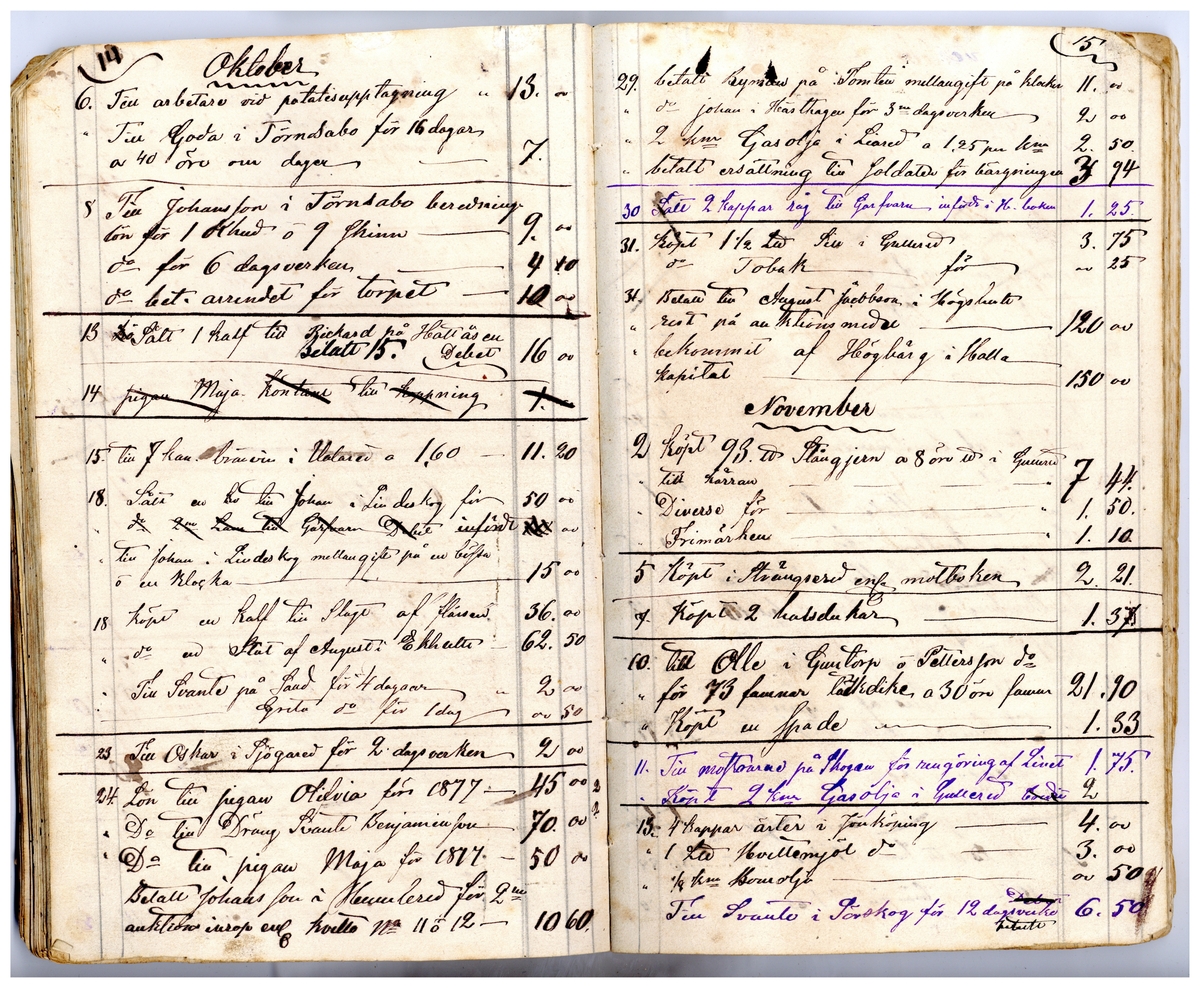 14
Oktober
6. Till arbetare vid potatisupptagning " 13. 00
" Till Goda i Törnsabo för 16 dagar
a 40 öre om dagen 7.
8 Till Johansson i Törnsabo berednings-
lön för 1 Khud o 9 Skinn 9. 00
do för 6 dagsverken 4 10
do bet. arrendet för torpet 10 00
13 Sålt 1 kalf till Rickard på Hattåsen
betalt 15. Debet 16 00
14 pigan Maja Kontant till Koppning 1.
15. till 7 kan. brännvin i Ulared a 1,60 11. 20
18. Sålt en ko till Johan i Lindeskog för 50 00
" do 2ne Lam till Garfvarn Debet infördt 00
" till Johan i Lindeskog mellangift på en bössa
o en Klocka 15 00
18 Köpt en kalf till Slagt af 36. 00
" do en Stut af August i Ekhult 62. 50
" Till Svante på Sand för 4 dagar " 2 00
" Greta do för 1 dag 00 50
23 Till Oskar i Sjögared för 2 dagsverken 2 00
24. Lön till pigan Olivia för 1877 45 00
" Do till Dräng Svante Benjaminson 70. 00
" Do till pigan Maja för 1877 50 00
Betalt Johansson i Hemlered för 2ne
auktions inrop enl kvitto No 11 o 12 10 60.
15
29. betalt Ryman på Tomten mellangift på klockan 11. 00
" do Johan i Hästhagen för 3ne dagsverken 2 00
" 2 knr Gasolja i Liared a 1.25 pr knr 2. 50.
" betalt ersättning till Soldaten för bärgningen 3 94
30 Sålt 2 kappar råg till Garfvarn införd i H. boken 1. 25.
31. Köpt 1 1/2 Sill i Gullered 3. 75
do Tobak för 00 25
31. Betalt till August Jacobsson i Högshult
" rest på auktionsmedel 120 00
" bekommit af Högbärg i Halla
kapital 150 00
November
2 Köpt 93. tt Stångjern a 8 öre tt i Gullered
" till kärran " 7 44.
" Diverse för 1. 50.
" Frimärken " 1. 10.
5 Köpt i Strängsered enl motboken 2. 21.
7. Köpt 2 halsdukar 1. 37
10. till Olle i Guntorp o Pettersson do
" för 73 famnar täckdike, a 30 öre famn 21. 90
" Köpt en Spade 1. 33
11. Till mostrarne på Skogen för rengöring af Linet 1. 75.
" Köpt 2 knr Gasolja i Gullered 2
13. 4 kappar ärter i Jönköping 4. 00
" 1 Ltt Hvettemjöl do 3. 00
" 1/2 knr Bomolja 00 50
Till Svante i Törskog för 12 dagsverke 6. 50
Debet
betalt